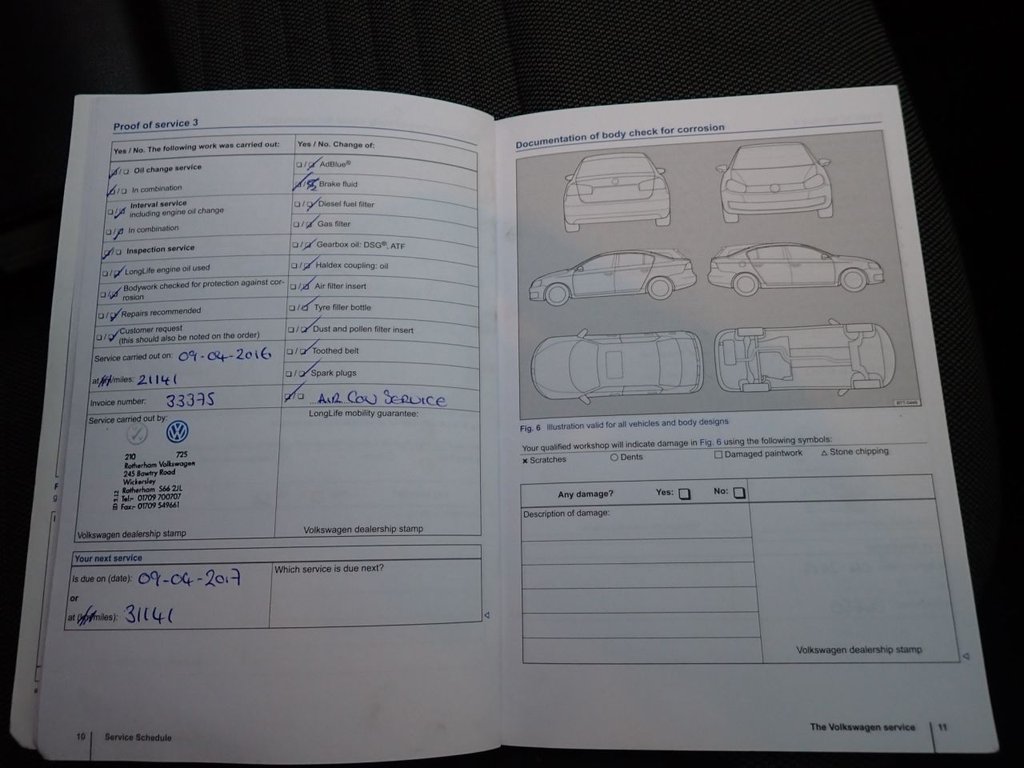 Proof of service 3
Yes / No. The following work was carried out:
Oil change service
In combination
Interval service
including engine oil change
In combination
Inspection service
LongLife engine oil used
Bodywork checked for protection against cor-
rosion
Repairs recommended
Customer request
(this should also be noted on the order)
Service carried out on: 09-04-2016
at km/miles: 21141
Invoice number: 33375
Service carried out by:
210 725
Rotherham Volkswagen
245 Bawtry Road
Wickersley
Rotherham S66 2JL
Tel:- 01709 700707
Fax:- 01709 549661
Volkswagen dealership stamp
Yes / No. Change of:
AdBlue®
Brake fluid
Diesel fuel filter
Gas filter
Gearbox oil: DSG®, ATF
Haldex coupling: oil
Air filter insert
Tyre filler bottle
Dust and pollen filter insert
Toothed belt
Spark plugs
AIR CON SERVICE
LongLife mobility guarantee:
Volkswagen dealership stamp
Your next service
Is due on (date): 09-04-2017
or
at (km/miles): 31141
Which service is due next?
10 Service Schedule
Documentation of body check for corrosion
Fig. 6 Illustration valid for all vehicles and body designs
Your qualified workshop will indicate damage in Fig. 6 using the following symbols:
× Scratches ○ Dents □ Damaged paintwork △ Stone chipping
Any damage? Yes: No:
Description of damage:
Volkswagen dealership stamp
The Volkswagen service 11